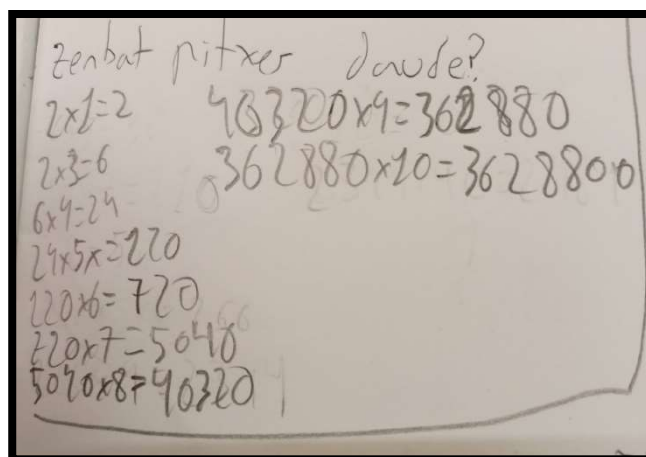 zenbat pitxer daude?
2x1=2
2x3=6
6x4=24
24x5x=120
120x6=720
720x7=5040
5040x8=40320
40320x9=362880
362880x10=3628800